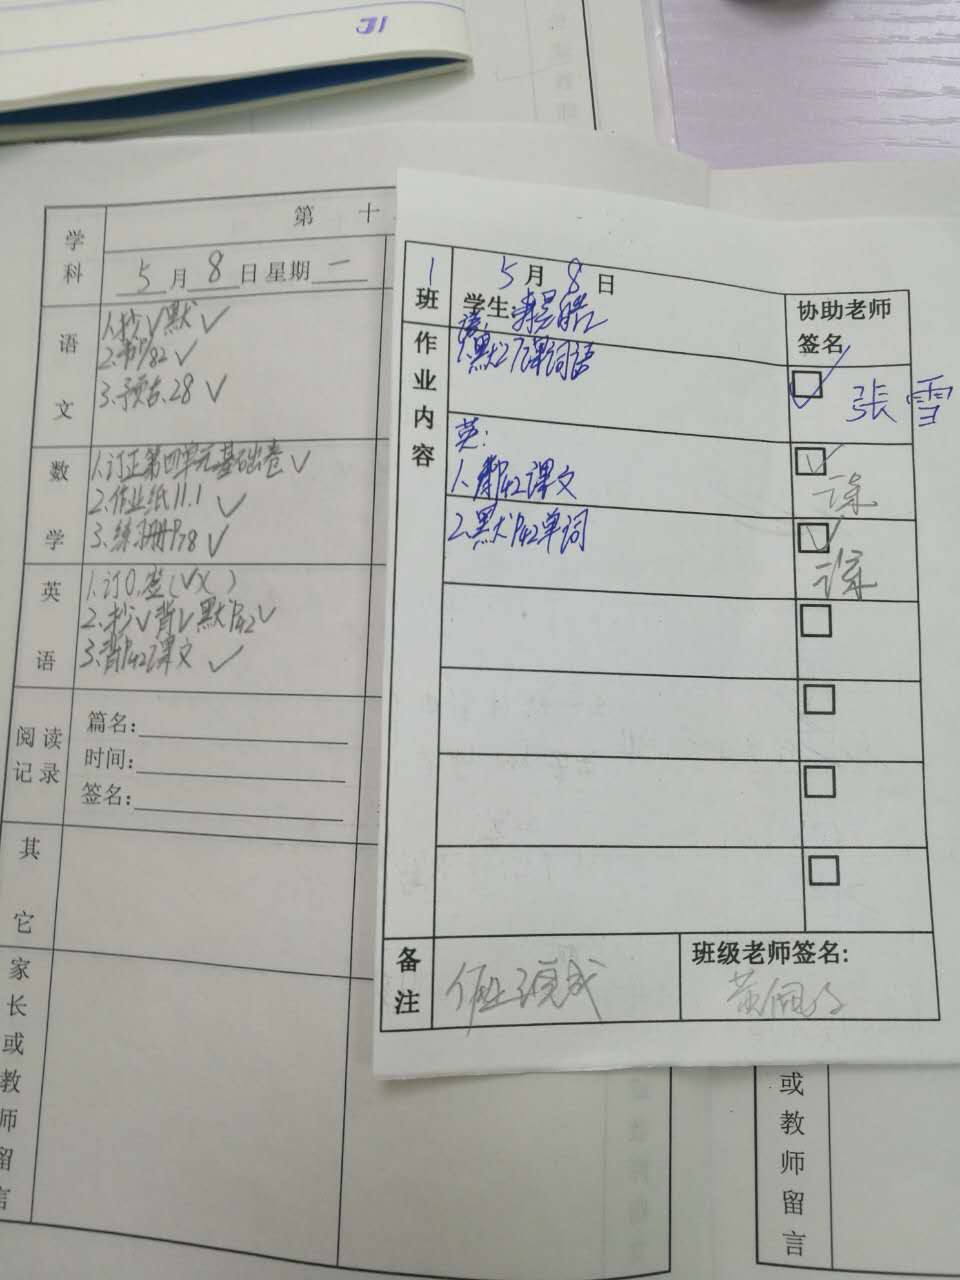 学科
第 十
5月8日 星期一
语文
1.抄√默√
2.书P82√
3.预古.28√
数学
1.订正第四单元基础卷√
2.作业纸11.1√
3.练习册P78√
英语
2.抄√背√默P42√
3.背P42课文√
阅读记录
篇名:
时间:
签名:
其它
家长或教师留言
1班
5月8日
学生:
协助老师签名
作业内容
语:
1.默27课词语
張雪
英:
1.背P42课文
2.默P42单词
备注
班级老师签名:
或教师留言